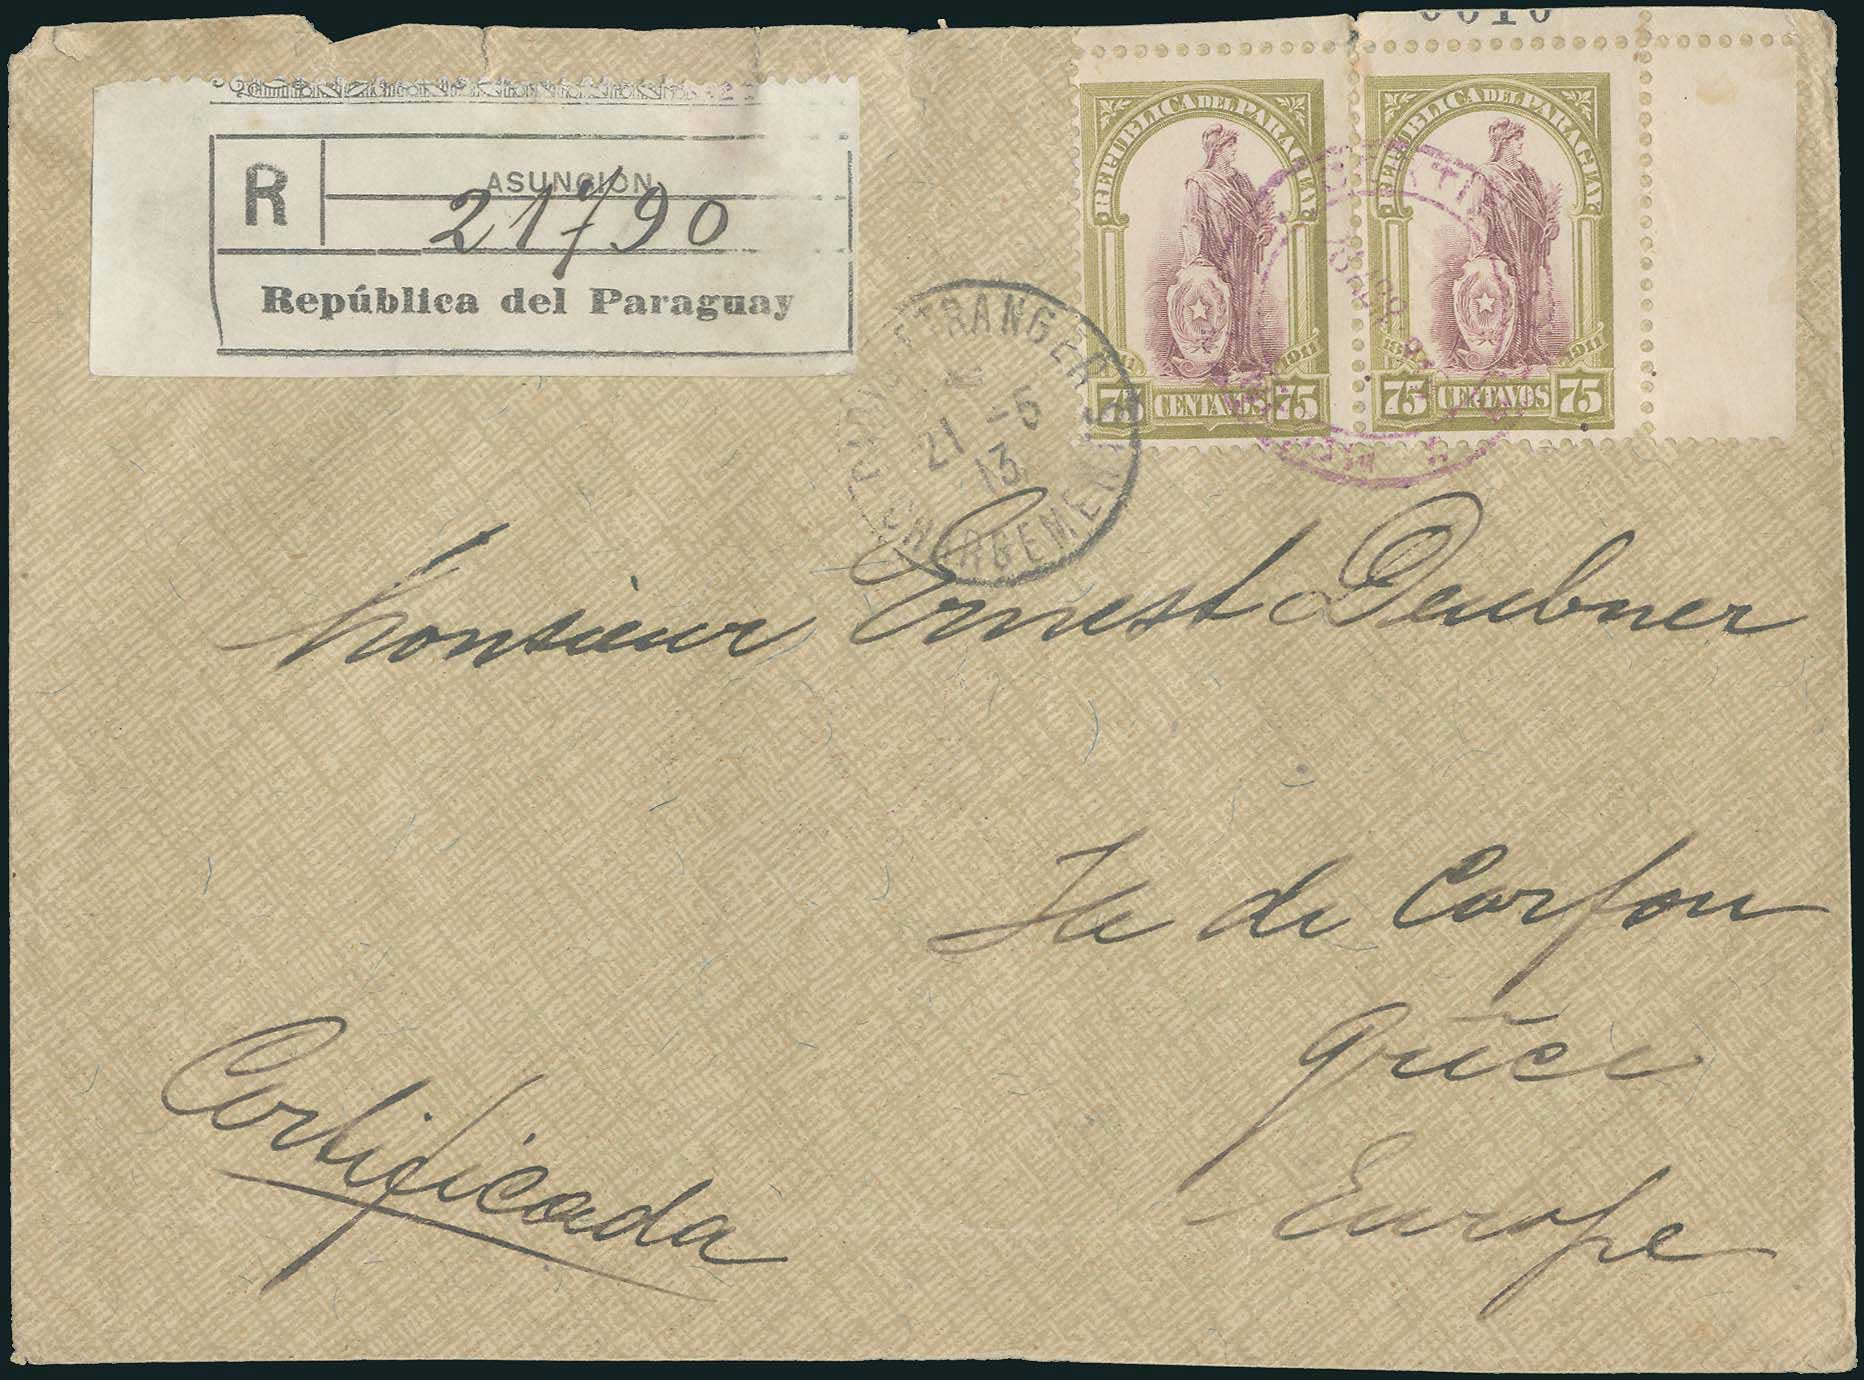 0010
R
ASUNCION
21790
República del Paraguay
REPUBLICA DEL PARAGUAY
1911
75 CENTAVOS 75
REPUBLICA DEL PARAGUAY
1911
75 CENTAVOS 75
ETRANGER
21 -5
13
CHARGEMENTS
Monsieur Ernest Deubner
Ile de Corfou
Grèce
Europe
Certificada